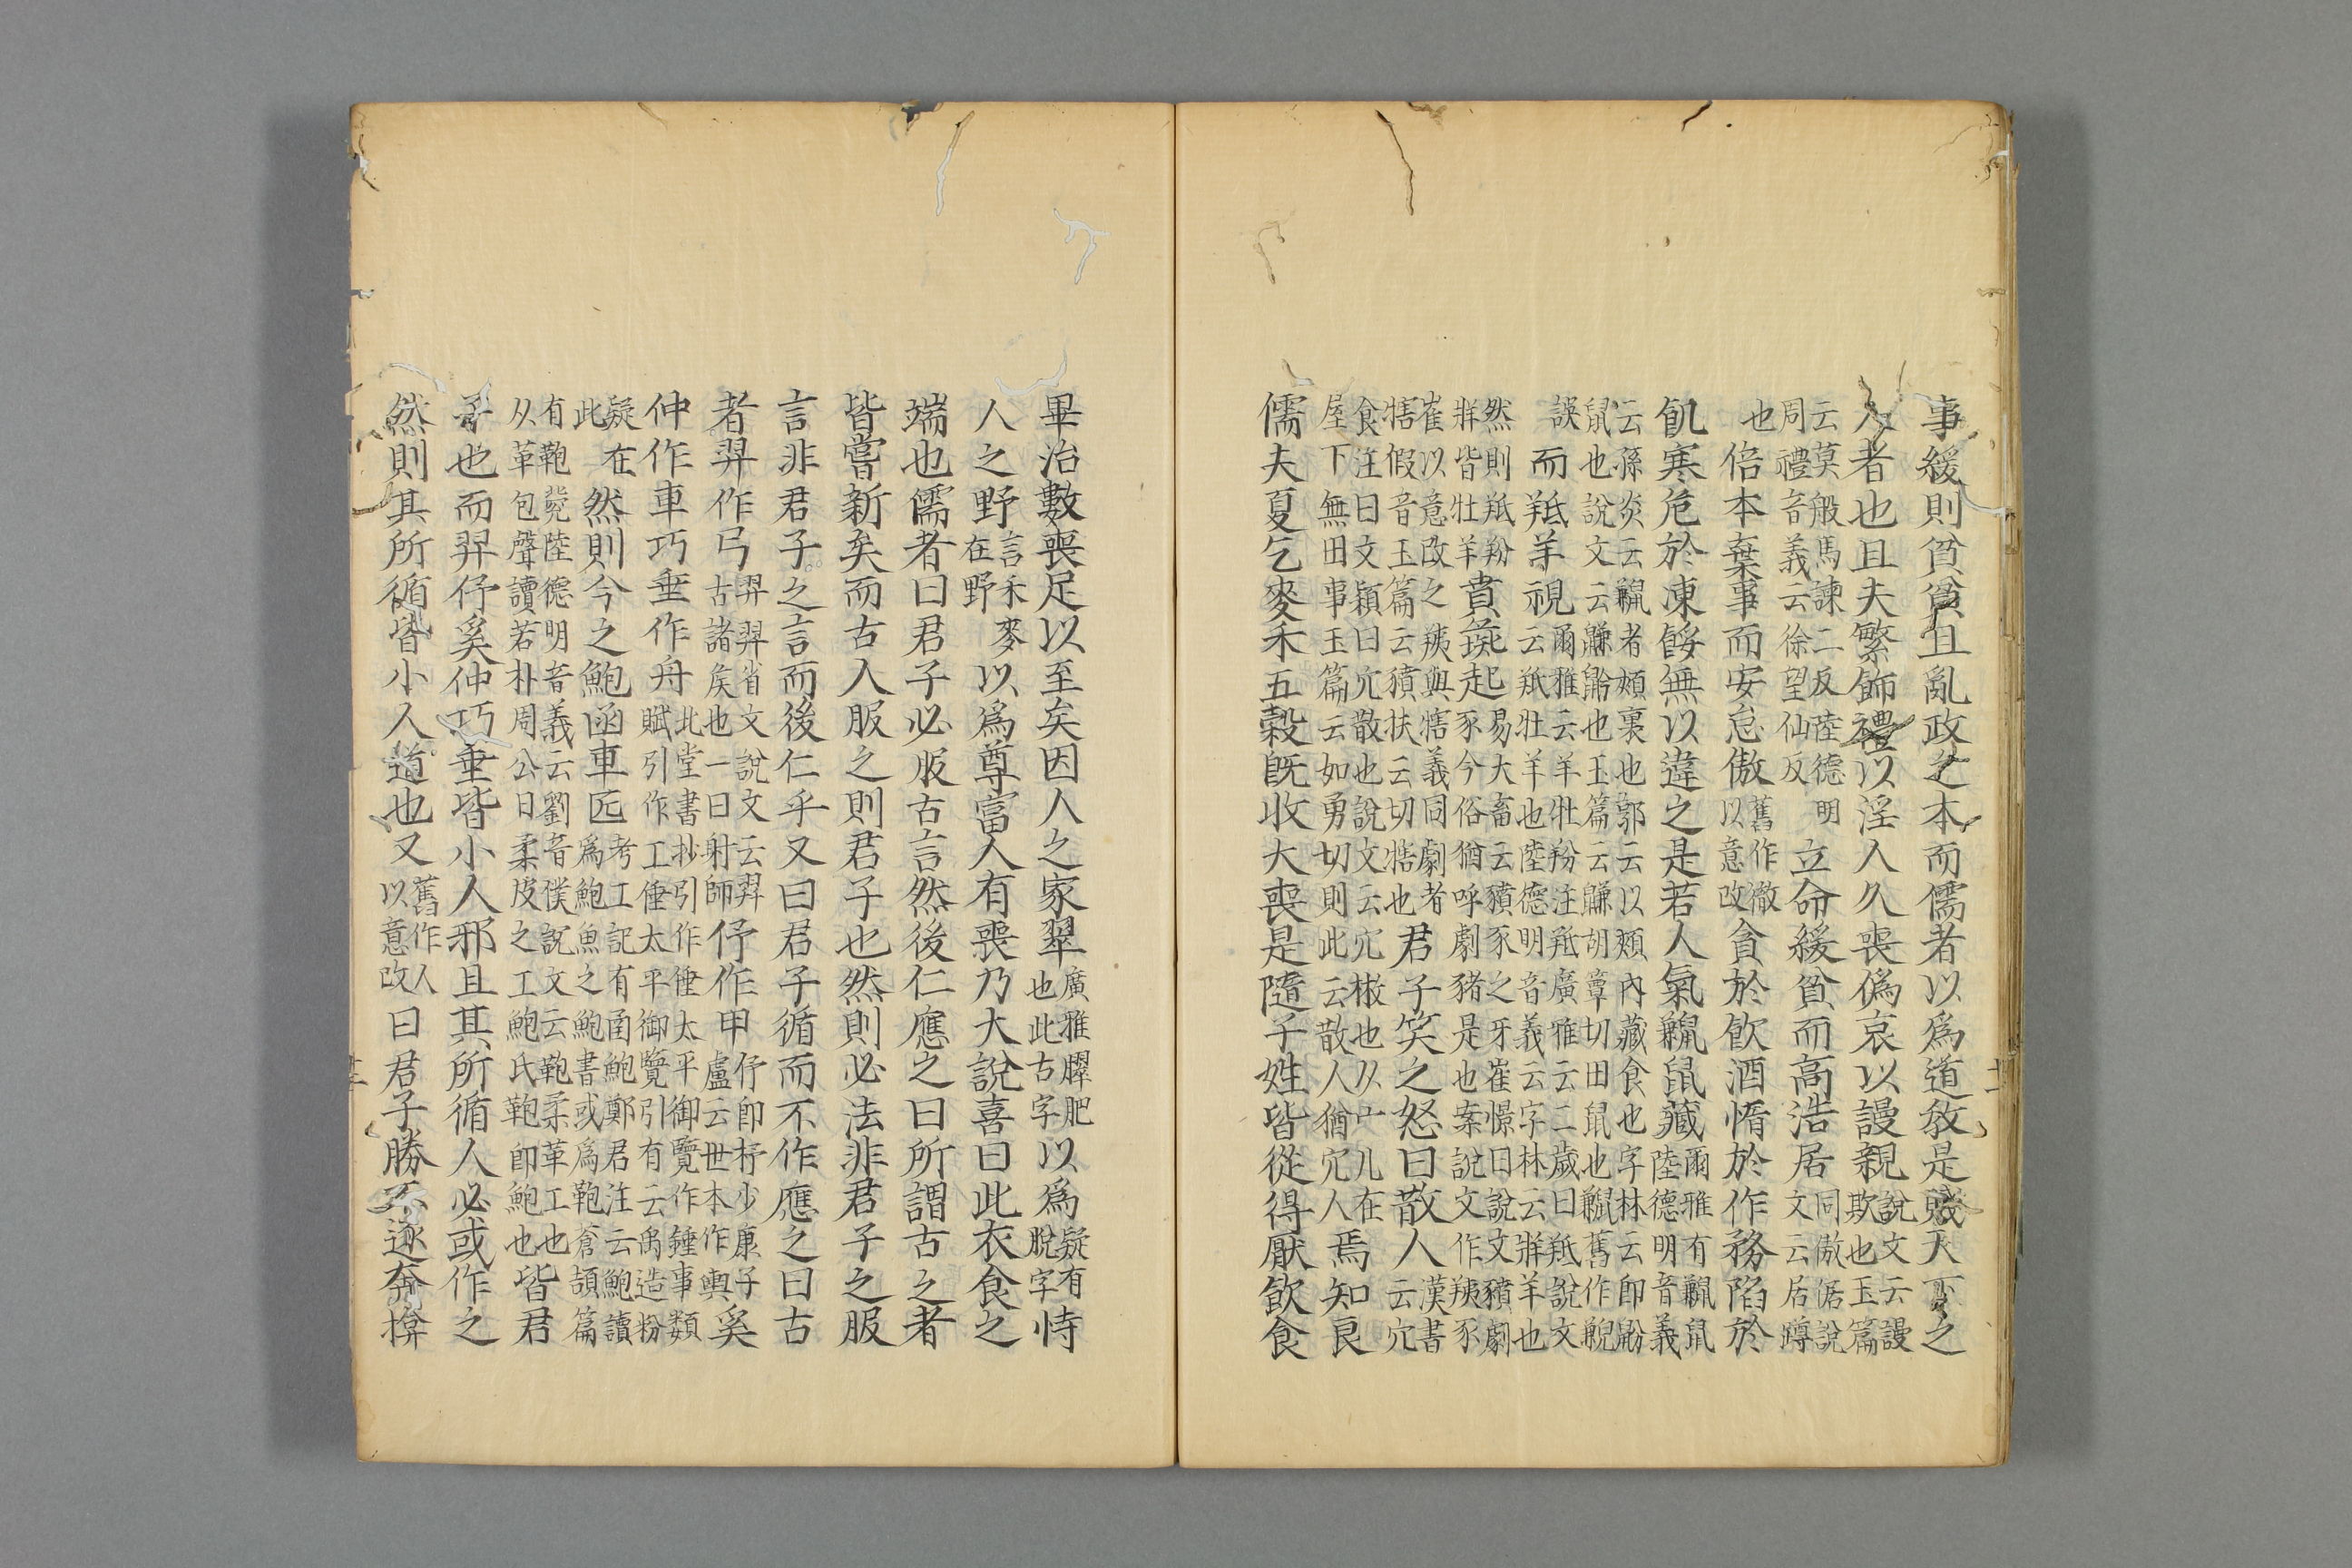 事緩則貧貧且亂政之本而儒者以爲道教是賤天下之
人者也且夫繁飾禮以淫人久喪偽哀以謾親說文云謾欺也玉篇
云莫般馬諫二反陸德明周禮音義云徐望仙反立命緩貧而高浩居同傲倨說文云居蹲
也倍本棄事而安怠傲舊作徹以意改貪於飮酒惰於作務陷於
飢寒危於凍餒無以違之是若人氣鼸鼠藏爾雅有鼸鼠陸德明音義
云孫炎云鼸者頰裏也郭云以頰內藏食也字林云即鼢鼠也說文云鼸鼢也玉篇云鼸胡簟切田鼠也鼸舊作
誤而羝羊視爾雅云羊牡羒注羝廣雅云二歲曰羝說文云羝牡羊也陸德明音義云字林云牂羊也
然則羝羒牂皆牡羊賁彘起易大畜云豶豕之牙崔憬曰說文豶劇豕今俗猶呼劇豬是也案說文作羠豕
崔以意改之羠與犗義同劇者犗假音玉篇云豶扶云切犗也君子笑之怒曰散人漢書云宂
食注曰文穎曰宂散也說文云宂㪔也从宀儿在屋下無田事玉篇云如勇切則此云散人猶宂人焉知良
儒夫夏乞麥禾五穀既收大喪是隨子姓皆從得厭飮食
畢治數喪足以至矣因人之家翠廣雅臎肥也此古字以爲疑有脫字恃
人之野言禾麥在野以爲尊富人有喪乃大說喜曰此衣食之
端也儒者曰君子必服古言然後仁應之曰所謂古之者
皆嘗新矣而古人服之則君子也然則必法非君子之服
言非君子之言而後仁乎又曰君子循而不作應之曰古
者羿作弓羿羿省文說文云羿古諸矦也一曰射師伃作甲伃卽杼少康子盧云世本作輿奚
仲作車巧垂作舟北堂書抄引作倕太平御覽作錘事類賦引作工倕太平御覽引有云禹造粉
疑在此然則今之鮑函車匠考工記有函鮑鄭君注云鮑讀爲鮑魚之鮑書或爲鞄蒼頡篇
有鞄㼱陸德明音義云劉音僕說文云鞄柔革工也从革包聲讀若朴周公曰柔皮之工鮑氏鞄卽鮑也皆君
子也而羿伃奚仲巧垂皆小人邪且其所循人必或作之
然則其所循皆小人道也又舊作人以意改曰君子勝不逐奔揜